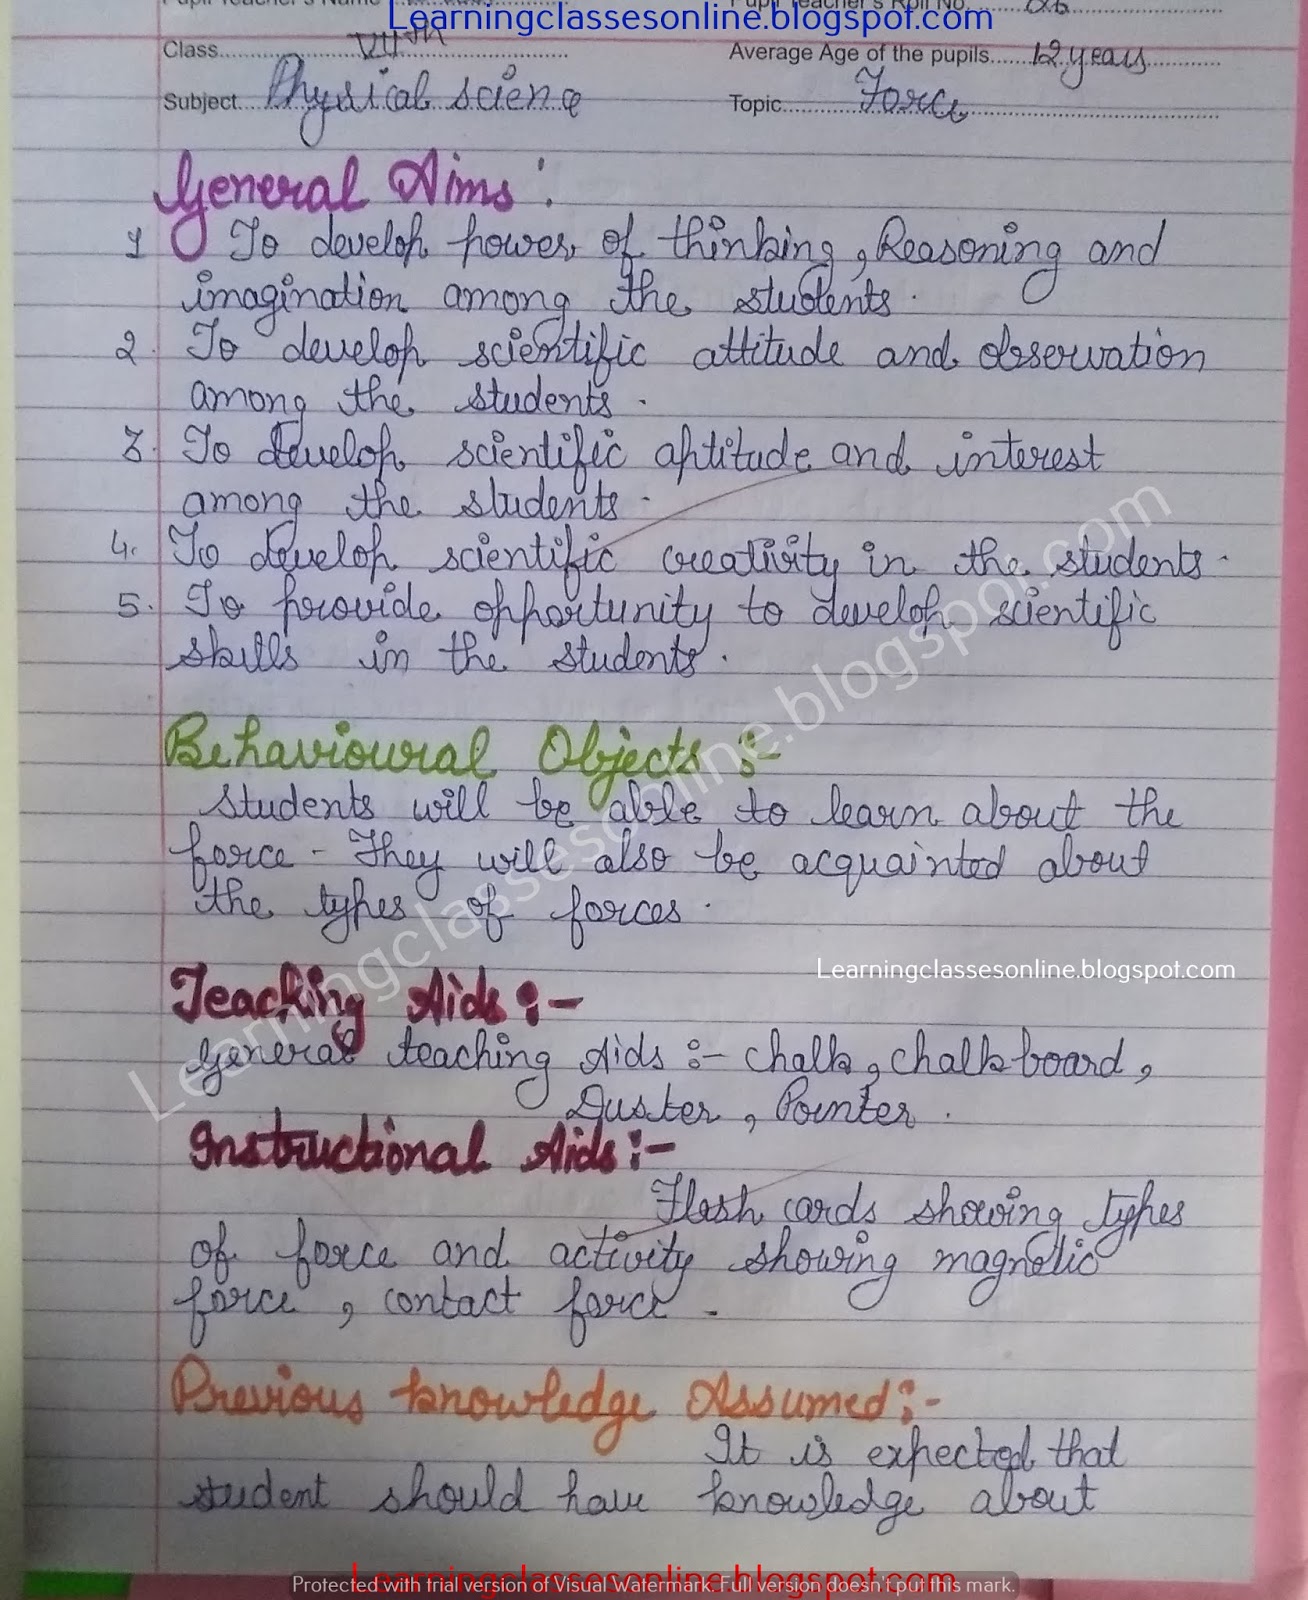 Learningclassesonline.blogspot.com
Pupil Teacher's Name Pupil Teacher's Roll No.
Class VIIth Average Age of the pupils 12 years
Subject Physical science Topic Force
General Aims :
1 To develop power of thinking, Reasoning and
imagination among the students.
2. To develop scientific attitude and observation
among the students.
3. To develop scientific aptitude and interest
among the students.
4. To develop scientific creativity in the students.
5. To provide opportunity to develop scientific
skills in the students.
Behavioural Objects :-
Students will be able to learn about the
force - They will also be acquainted about
the types of forces.
Learningclassesonline.blogspot.com
Learningclassesonline.blogspot.com
Teaching Aids :-
General teaching Aids :- chalk, chalk board,
Duster, Pointer.
Instructional Aids :-
Flash cards showing types
of force and activity showing magnetic
force, contact force -
Previous knowledge Assumed :-
It is expected that
student should have knowledge about
Learningclassesonline.blogspot.com
Protected with trial version of Visual Watermark. Full version doesn't put this mark.